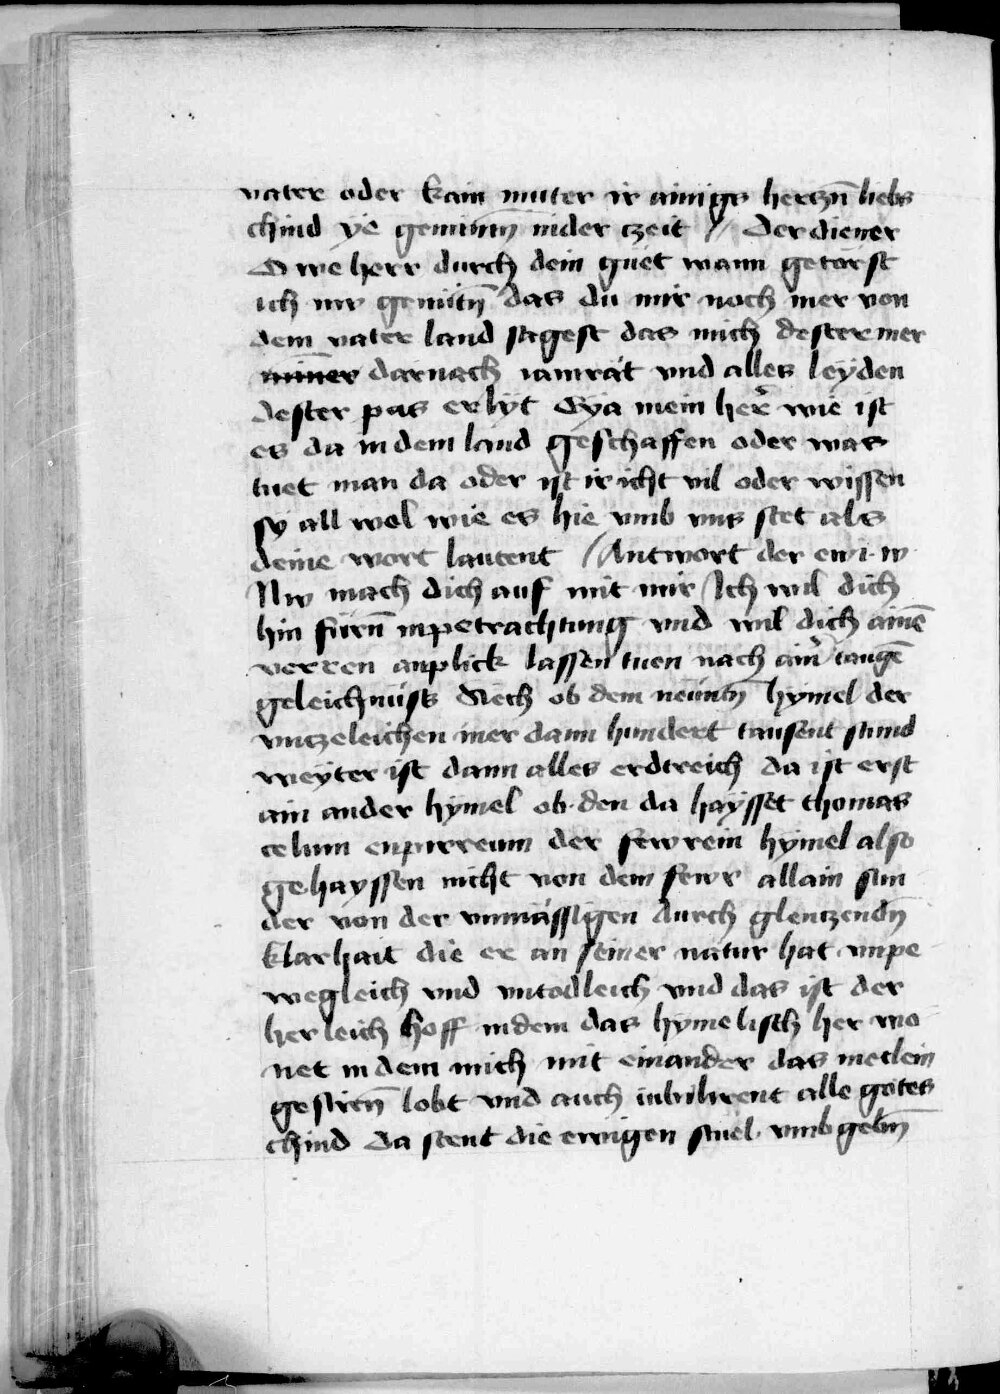 vater oder kain muter ir ainigs hertzn̄ liebs
chind ye gemintn̄ in der czeit // Der diener
O we herr durch dein güet wann getörst
ich nw gemütn̄ das du mir noch mer von
dem vater land sagest das mich dester mer
miner darnach iamrät vnd alles leyden
dester pas erlyt Eya mein her̄ wie ist
es da in dem land geschaffen oder was
tuet man da oder ist ir icht vil oder wissen
sy all wol wie es hie vmb vns stet als
deine wort lautent / Antwort der ewi· w·
Nw mach dich auf mit mir / Ich wil dich
hin fürn̄ in petrachtung vnd wil dich ainē
verren anplick lassen tuen nach ainr̄ taugē
geleichnüss Siech ob dem neüntn̄ hymel der
vnczeleichen mer dann hundert tausent stund
weyter ist dann alles erdtreich da ist erst
ain ander hymel ob den da haysset thomas
celum enpirreum der fewrein hymel also
gehayssen nicht von dem fewr allain sun
der von der vnmässigen durch glentzendn̄
klarhait die er an seiner natur hat vnpe
wegleich vnd vntödleich vnd das ist der
herleich hoff in dem das hymelisch her wo
net in dem mich mit einander das metlein
gestirn̄ lobt vnd auch iubilirent alle gotes
chind da stent die ewigen stuel vmbgebn̄